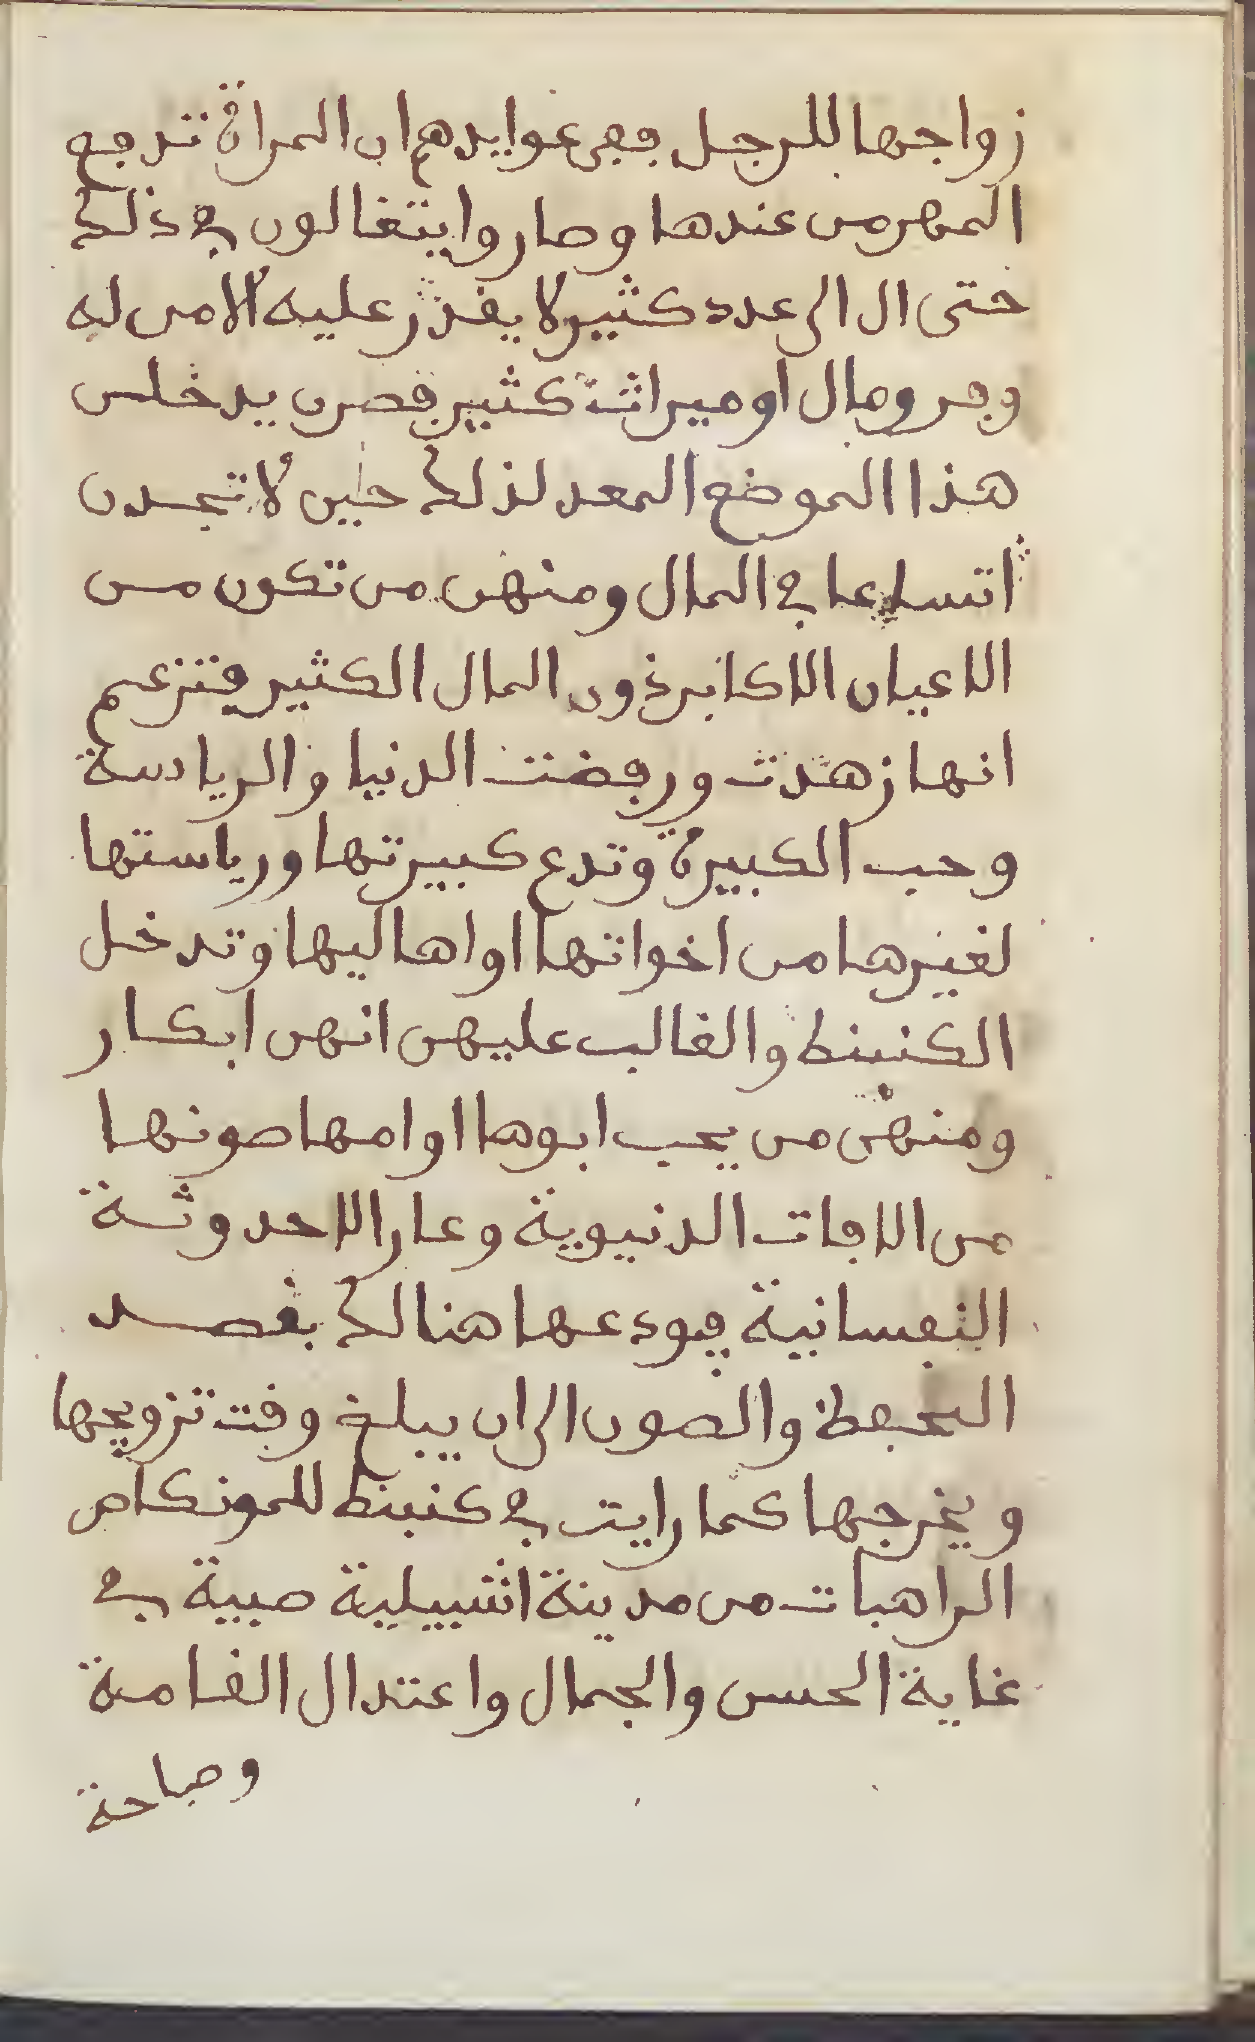 زواجها للرجل فمن عوايدهم ان المراة تدفع
المهر من عندها وصاروا يتغالون في ذلك
حتى ال الى عدد كثير لا يقدر عليه الا من له
وفر ومال او ميراث كثير فصرن يدخلن
هذا الموضع المعد لذلك حين لا تجدن
اتساعا في المال ومنهن من تكون من
الاعيان الاكابر ذوي المال الكثير فتزعم
انها زهدت ورفضت الدنيا والرياسة
وحب الكبيرة وتدع كبيرتها ورياستها
لغيرها من اخواتها او اهاليها وتدخل
الكنبنط والغالب عليهن انهن ابكار
ومنهن من يحب ابوها او امها صونها
من الافات الدنيوية وعار الاحدوثة
النفسانية فيودعها هنالك بقصد
التحفظ والصون الى ان يبلغ وقت تزويجها
ويخرجها كما رايت في كنبنط للمونكاص
الراهبات من مدينة اشبيلية صبية في
غاية الحسن والجمال واعتدال القامة
وصباحة